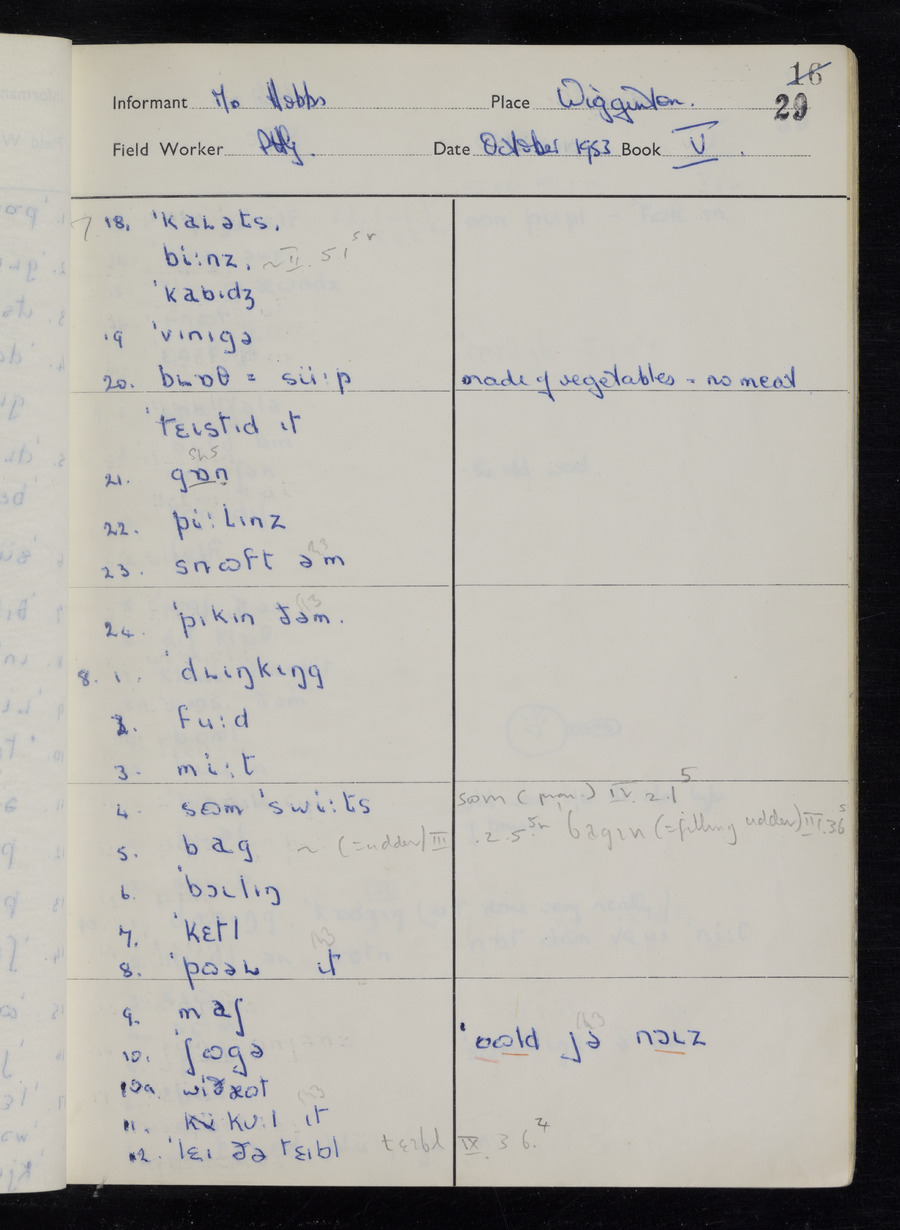 16
29
Informant Mr Hobbs Place Wigginton.
Field Worker Date October 1953 Book V.
7 18. ˈkaɹəts.
biːnz. ~ II. 5 1
ˈkabɪdʒ
19 ˈvɪnɪgə
20. bɹɒθ = süːp made of vegetables - no meat
ˈtɛɪstɪd ɪt
21. gɒn
22. piːlɪnz
23. snɷft əm
24. ˈpɪkɪn ðəm.
8. 1. ˈdɹɪŋkɪŋg
2. fuːd
3. miːt
4. sɷm ˈswiːts sɷm (pron.) IV. 2.1 5
5. bag ~ (=udder) III .2.5 bagɪn (=filling udder) III.36 5
6. ˈbɔɪlɪŋ
7. ˈkɛtl
8. ˈpɷəɹ ɪt
9. maʃ
10. ˈʃɷgə ˈɷold jə nɔɪz
10a. wɪðæot
11. kuːl ɪt
12. ˈlɛɪ ðə tɛɪbl tɛɪbl IX. 3 6. 4